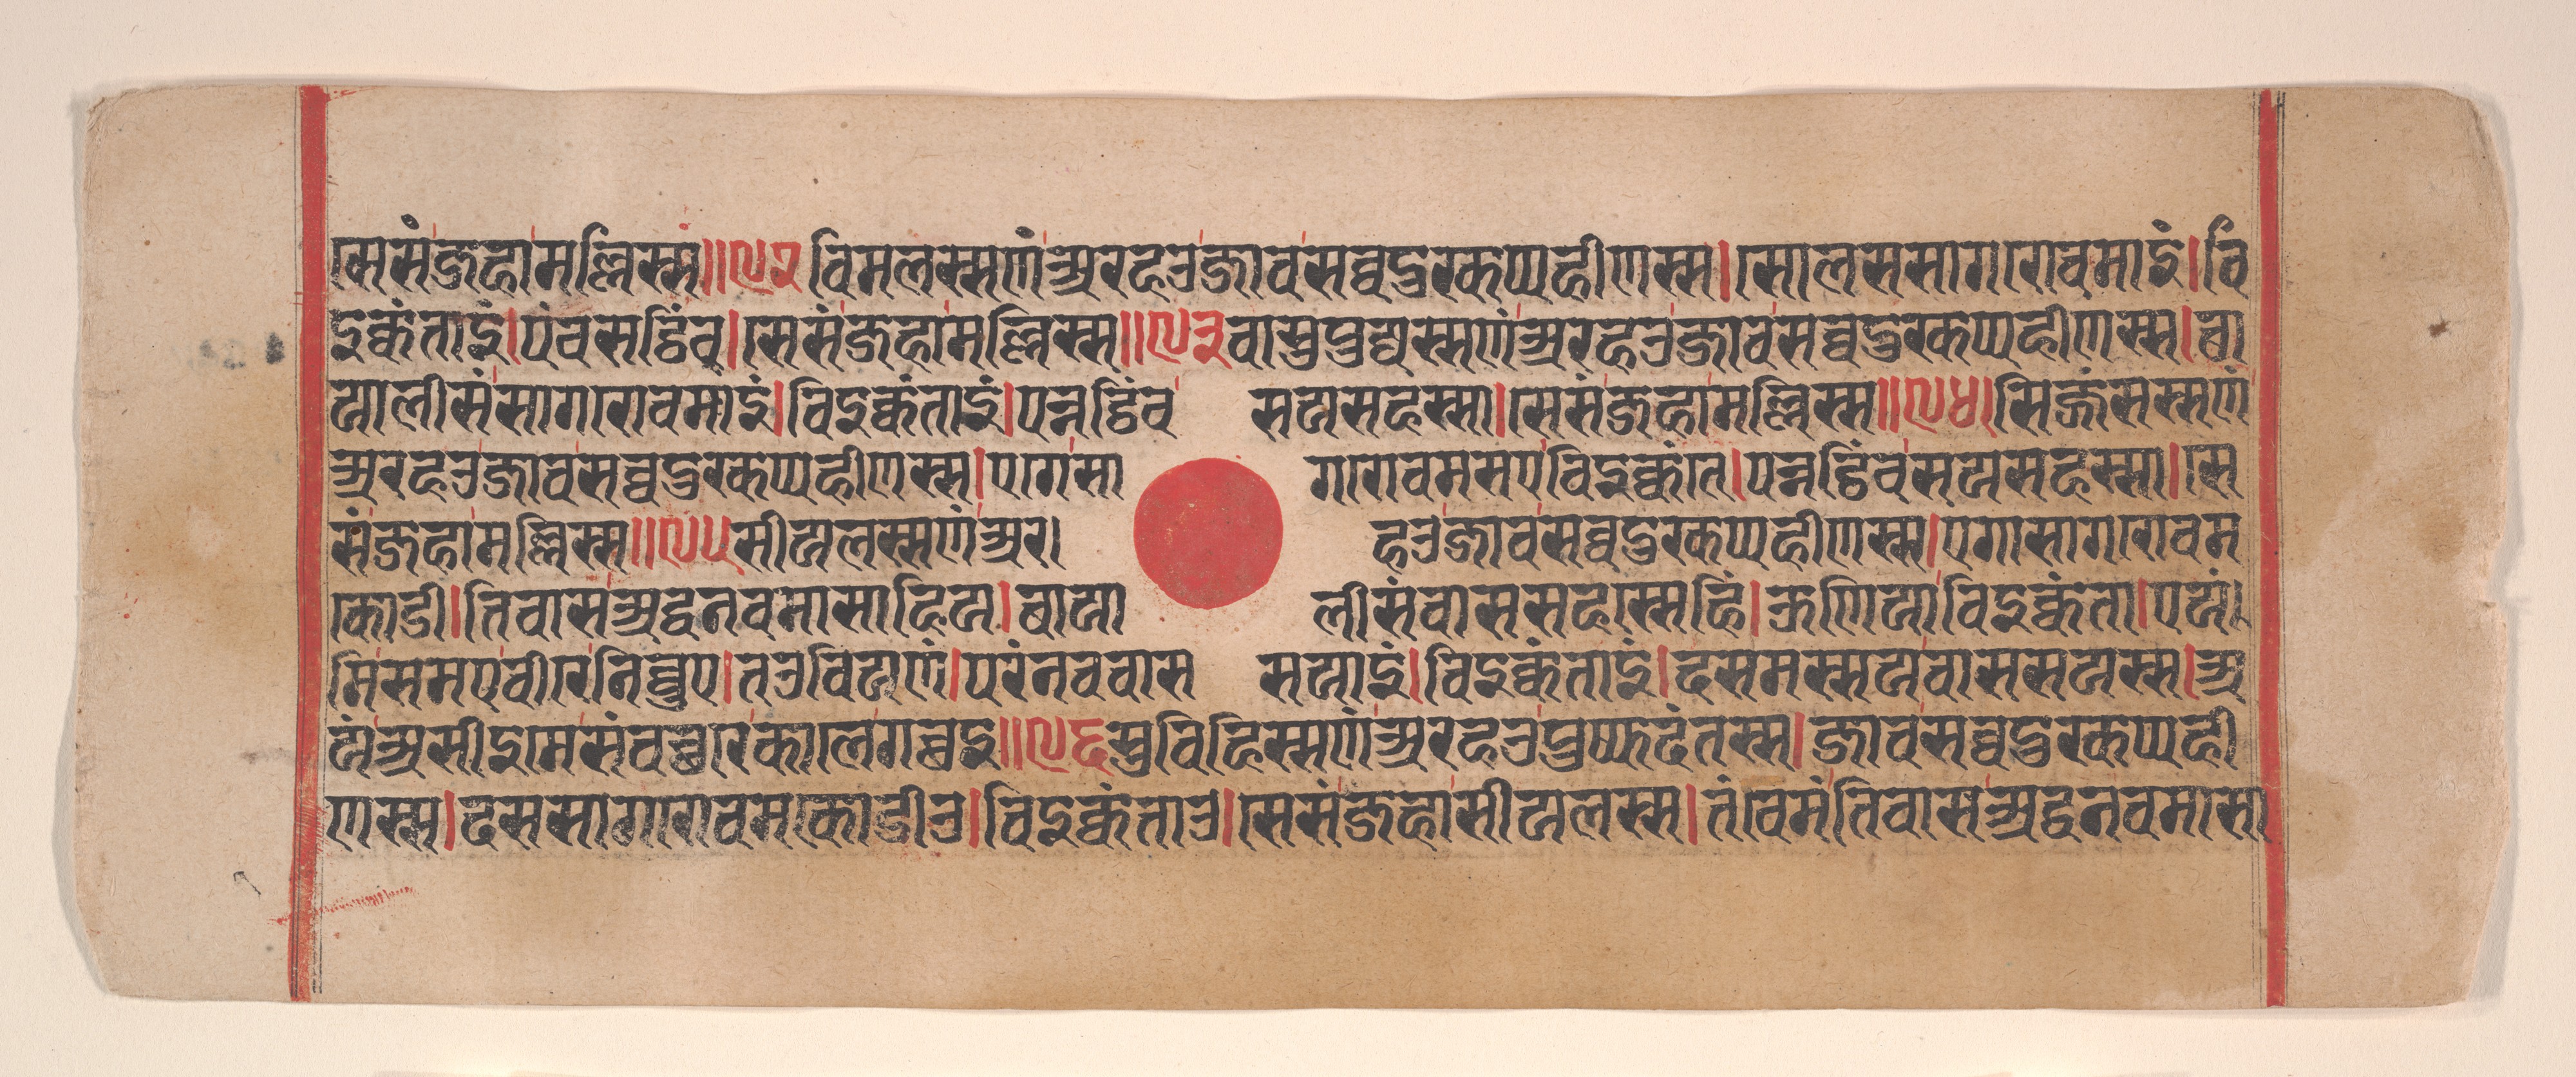 सेसं जहा मल्लिस्स॥१२ विमलस्स णं अरहओ जाव सव्वदुक्खप्पहीणस्स।सोलस सागरोवमाइं।वि
इक्कंताइं।पंचसट्ठिं च।सेसं जहा मल्लिस्स॥१३ वासुपुज्जस्स णं अरहओ जाव सव्वदुक्खप्पहीणस्स।छा
यालीसं सागरोवमाइं।विइक्कंताइं।पन्नट्ठिं च सयसहस्सा।सेसं जहा मल्लिस्स॥१४।सिज्जंसस्स णं
अरहओ जाव सव्वदुक्खप्पहीणस्स।एगे सागरोवमसए विइक्कंते।पन्नट्ठिं च सयसहस्सा।से
सं जहा मल्लिस्स॥१५ सीयलस्स णं अर हओ जाव सव्वदुक्खप्पहीणस्स।एगा सागरोवम
कोडी।तिवासअद्धनवमासाहिय।बाया लीसं वाससहस्सेहिं।ऊणिया विइक्कंता।एयं
मि समए वीरे निव्वुए।तओ वि य णं।परं नववास सयाइं।विइक्कंताइं।दसमस्स य वाससयस्स।अ
यं असीइमे संवच्छरे काले गच्छइ॥१६ सुविहिस्स णं अरहओ पुप्फदंतस्स।जाव सव्वदुक्खप्पही
णस्स।दस सागरोवमकोडीओ।विइक्कंताओ।सेसं जहा सीयलस्स।तं चेमं तिवासअद्धनवमासा